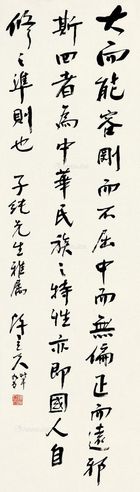 大而能容剛而不屈中而無偏正而遠邪
斯四者為中華民族之特性亦即國人自
修之準則也 子純先生雅屬 許